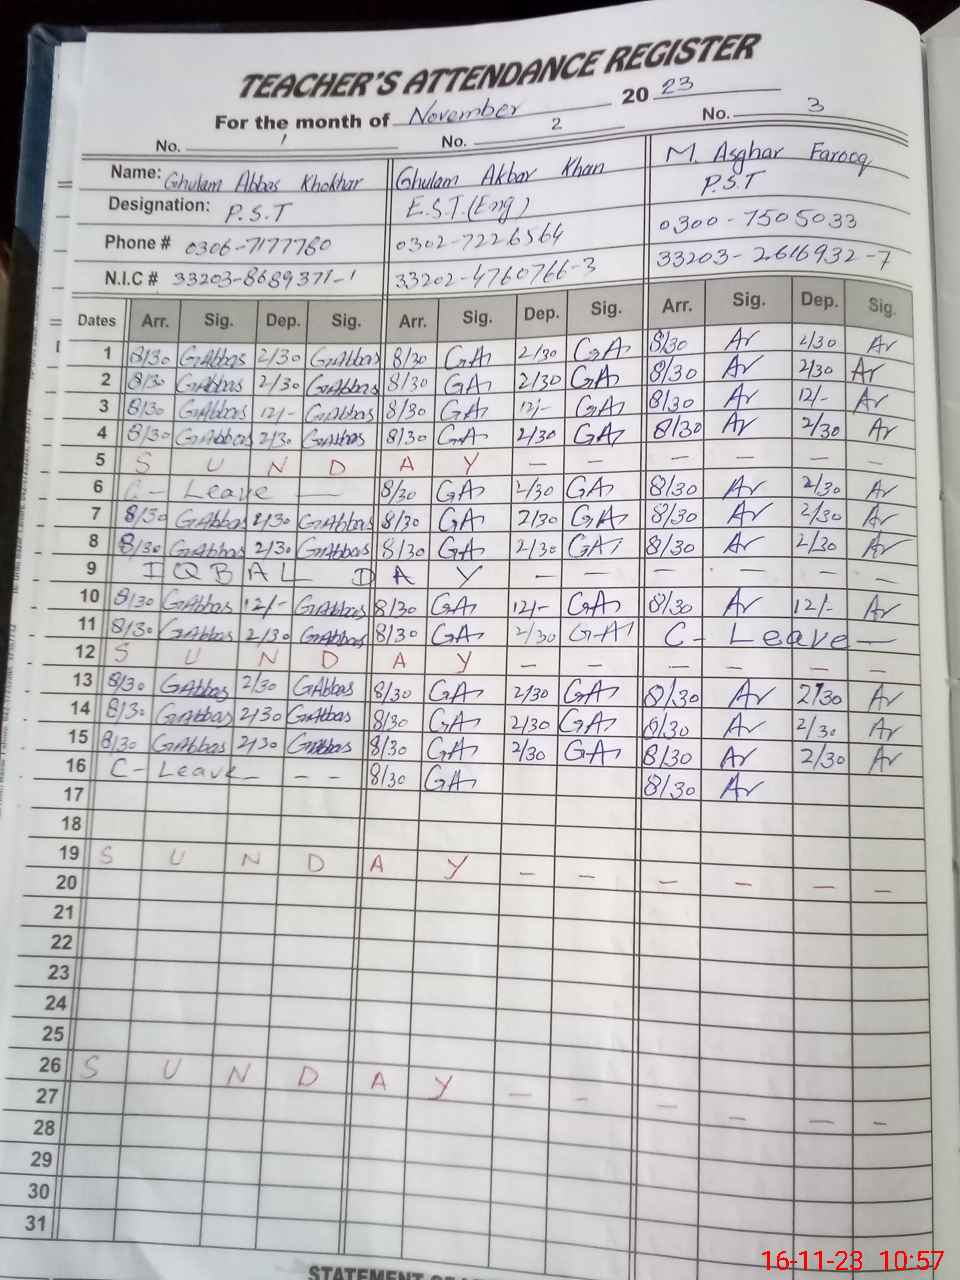 TEACHER'S ATTENDANCE REGISTER
For the month of November 2023
No. 1 No. 2 No. 3
Name: Ghulam Abbas Khokhar Ghulam Akbar Khan M. Asghar Farooq
Designation: P.S.T E.S.T.(Eng) P.S.T
Phone # 0306-7177780 0302-7226564 0300-7505033
N.I.C # 33203-8689371-1 33202-4760766-3 33203-2616932-7
Dates Arr. Sig. Dep. Sig. Arr. Sig. Dep. Sig. Arr. Sig. Dep. Sig.
1 8/30 GAbbas 2/30 GAbbas 8/30 GA 2/30 GA 8/30 Ar 2/30 Ar
2 8/30 GAbbas 2/30 GAbbas 8/30 GA 2/30 GA 8/30 Ar 2/30 Ar
3 8/30 GAbbas 12/- GAbbas 8/30 GA 12/- GA 8/30 Ar 12/- Ar
4 8/30 GAbbas 2/30 GAbbas 8/30 GA 2/30 GA 8/30 Ar 2/30 Ar
5 S U N D A Y — — — — — —
6 C- Leave — 8/30 GA 2/30 GA 8/30 Ar 2/30 Ar
7 8/30 GAbbas 2/30 GAbbas 8/30 GA 2/30 GA 8/30 Ar 2/30 Ar
8 8/30 GAbbas 2/30 GAbbas 8/30 GA 2/30 GA 8/30 Ar 2/30 Ar
9 I Q B A L D A Y — — — — — —
10 8/30 GAbbas 12/- GAbbas 8/30 GA 12/- GA 8/30 Ar 12/- Ar
11 8/30 GAbbas 2/30 GAbbas 8/30 GA 2/30 GA C- Leave —
12 S U N D A Y — — — — — —
13 8/30 GAbbas 2/30 GAbbas 8/30 GA 2/30 GA 8/30 Ar 2/30 Ar
14 8/30 GAbbas 2/30 GAbbas 8/30 GA 2/30 GA 8/30 Ar 2/30 Ar
15 8/30 GAbbas 2/30 GAbbas 8/30 GA 2/30 GA 8/30 Ar 2/30 Ar
16 C- Leave — — — 8/30 GA 8/30 Ar
17
18
19 S U N D A Y — — — — — —
20
21
22
23
24
25
26 S U N D A Y — — — — — —
27
28
29
30
31
STATEMENT OF
16-11-23 10:57